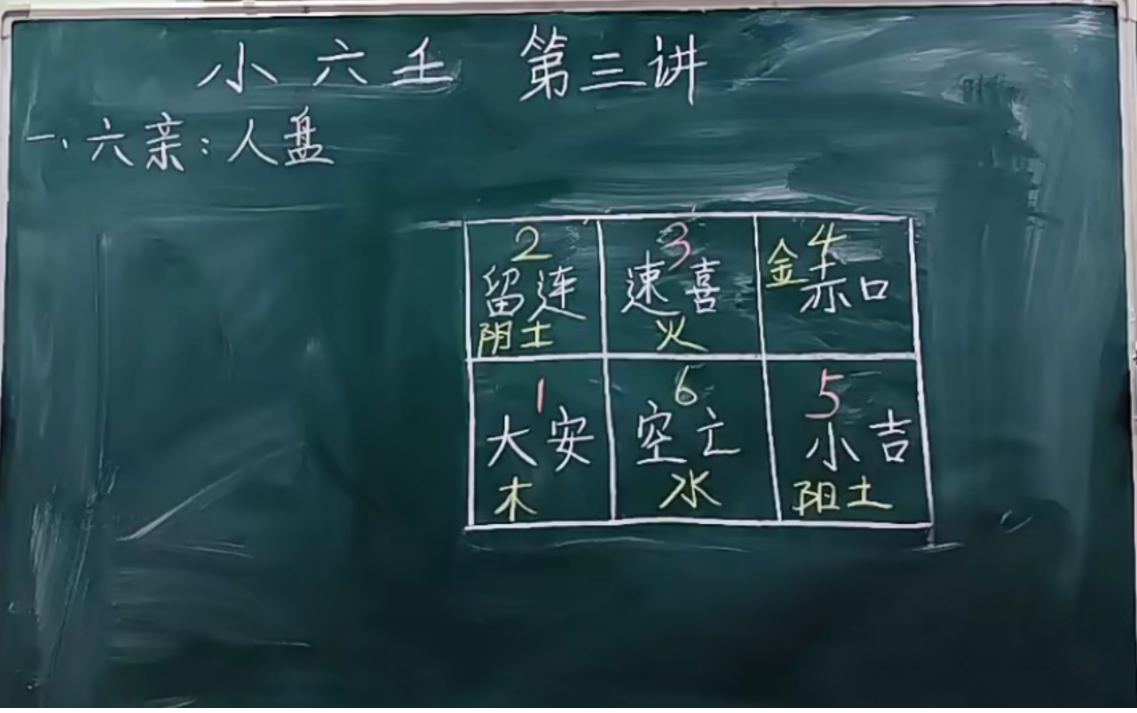 小六壬 第三讲
一、六亲：人盘
2 3 4
留连 速喜 金赤口
阴土 火
1 6 5
大安 空亡 小吉
木 水 阳土